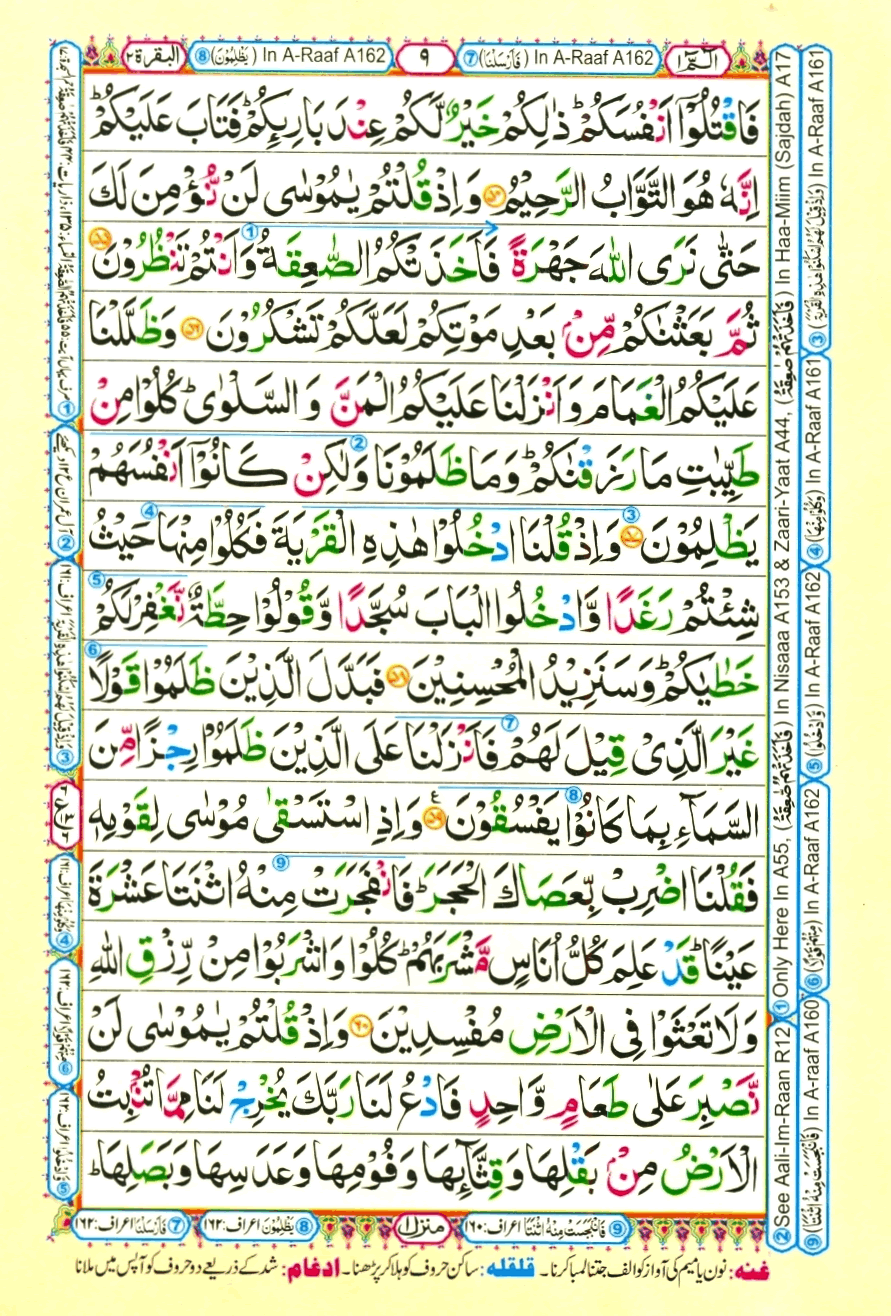 الٓمّٓ ١
In A-Raaf A162 (فَاَرْسَلْنَا) ⑦
٩
In A-Raaf A162 (يَظْلِمُوْنَ) ⑧
البقرة ٢
فَاقْتُلُوْۤا اَنْفُسَكُمْ ؕ ذٰلِكُمْ خَيْرٌ لَّكُمْ عِنْدَ بَارِىِٕكُمْ ؕ فَتَابَ عَلَيْكُمْ ؕ
اِنَّهٗ هُوَ التَّوَّابُ الرَّحِيْمُ ۝۵۴ وَاِذْ قُلْتُمْ يٰمُوْسٰى لَنْ نُّؤْمِنَ لَكَ
حَتّٰى نَرَى اللّٰهَ جَهْرَةً فَاَخَذَتْكُمُ الصّٰعِقَةُ وَاَنْتُمْ تَنْظُرُوْنَ ۝۵۵
ثُمَّ بَعَثْنٰكُمْ مِّنْۢ بَعْدِ مَوْتِكُمْ لَعَلَّكُمْ تَشْكُرُوْنَ ۝۵۶ وَظَلَّلْنَا
عَلَيْكُمُ الْغَمَامَ وَاَنْزَلْنَا عَلَيْكُمُ الْمَنَّ وَالسَّلْوٰى ؕ كُلُوْا مِنْ
طَيِّبٰتِ مَا رَزَقْنٰكُمْ ؕ وَمَا ظَلَمُوْنَا وَلٰكِنْ كَانُوْۤا اَنْفُسَهُمْ
يَظْلِمُوْنَ ۝۵۷ وَاِذْ قُلْنَا ادْخُلُوْا هٰذِهِ الْقَرْيَةَ فَكُلُوْا مِنْهَا حَيْثُ
شِئْتُمْ رَغَدًا وَّادْخُلُوا الْبَابَ سُجَّدًا وَّقُوْلُوْا حِطَّةٌ نَّغْفِرْ لَكُمْ
خَطٰيٰكُمْ ؕ وَسَنَزِيْدُ الْمُحْسِنِيْنَ ۝۵۸ فَبَدَّلَ الَّذِيْنَ ظَلَمُوْا قَوْلًا
غَيْرَ الَّذِىْ قِيْلَ لَهُمْ فَاَنْزَلْنَا عَلَى الَّذِيْنَ ظَلَمُوْا رِجْزًا مِّنَ
السَّمَآءِ بِمَا كَانُوْا يَفْسُقُوْنَ ۝۵۹ ع وَاِذِ اسْتَسْقٰى مُوْسٰى لِقَوْمِهٖ
فَقُلْنَا اضْرِبْ بِّعَصَاكَ الْحَجَرَ ؕ فَانْفَجَرَتْ مِنْهُ اثْنَتَا عَشْرَةَ
عَيْنًا ؕ قَدْ عَلِمَ كُلُّ اُنَاسٍ مَّشْرَبَهُمْ ؕ كُلُوْا وَاشْرَبُوْا مِنْ رِّزْقِ اللّٰهِ
وَلَا تَعْثَوْا فِى الْاَرْضِ مُفْسِدِيْنَ ۝۶۰ وَاِذْ قُلْتُمْ يٰمُوْسٰى لَنْ
نَّصْبِرَ عَلٰى طَعَامٍ وَّاحِدٍ فَادْعُ لَنَا رَبَّكَ يُخْرِجْ لَنَا مِمَّا تُنْۢبِتُ
الْاَرْضُ مِنْۢ بَقْلِهَا وَقِثَّآئِهَا وَفُوْمِهَا وَعَدَسِهَا وَبَصَلِهَا ؕ
① Only Here In A55, (فَاَخَذَتْهُمُ صٰعِقَةُ) In Nisaaa A153 & Zaari-Yaat A44, (فَاَخَذَتْهُمْ صٰعِقَةُ) In Haa-Miim (Sajdah) A17
② See Aali-Im-Raan R12
③ (وَاِذْ قِيْلَ لَهُمُ اسْكُنُوْا هٰذِهِ الْقَرْيَةَ) In A-Raaf A161
④ (وَكُلُوْا مِنْهَا) In A-Raaf A161
⑤ (وَادْخُلُوا) In A-Raaf A162
⑥ (مِنْهُمْ قَوْلًا) In A-Raaf A162
⑨ (فَانْۢبَجَسَتْ مِنْهُ اثْنَتَا) In A-raaf A160
⑨ فَانْۢبَجَسَتْ مِنْهُ اثْنَتَا اعراف:١٦٠
منزل ١
⑧ يَظْلِمُوْنَ اعراف:١٦٢
⑦ فَاَرْسَلْنَا اعراف:١٦٢
غنه: نون یا میم کی آواز کو الف جتنا لمبا کرنا۔ قلقله: ساکن حروف کو ہلا کر پڑھنا۔ ادغام: شد کے ذریعے دو حروف کو آپس میں ملانا